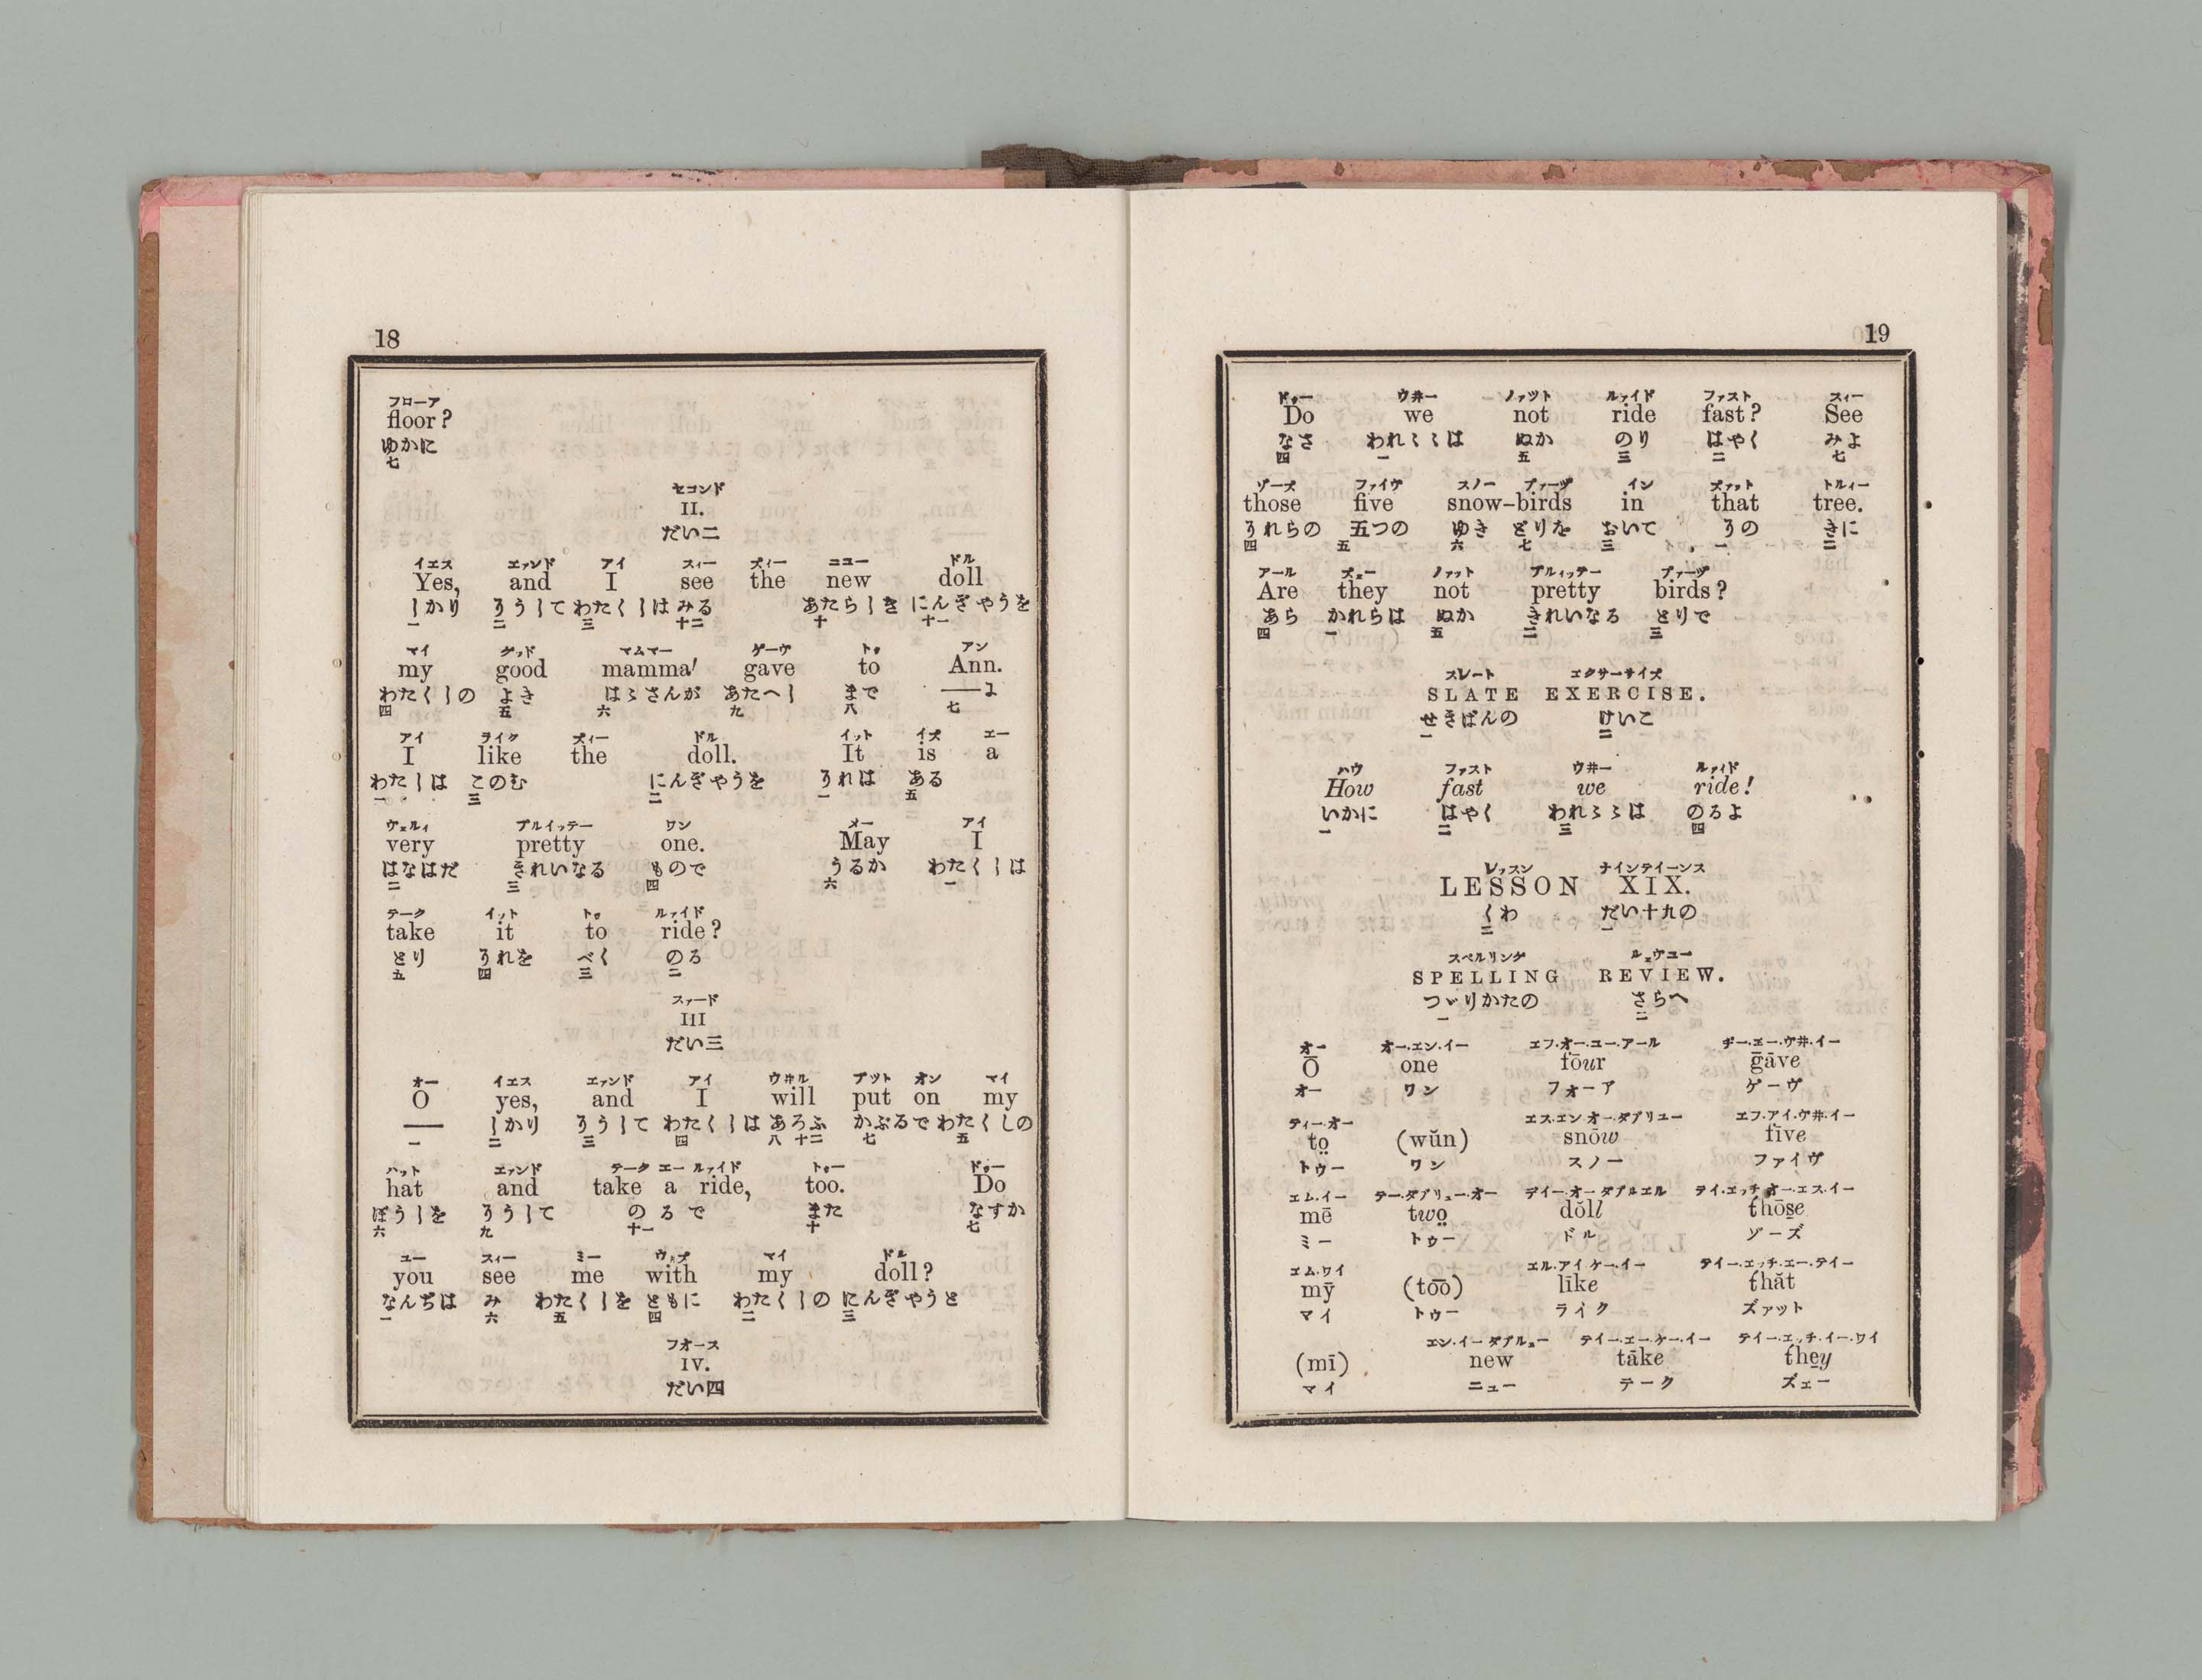 18
フローア
floor?
ゆかに
七
セコンド
II.
だい二
イエス エァンド アイ スィー ズィー ニユー ドル
Yes, and I see the new doll
しかり そうして わたくしは みる あたらしき にんぎやうを
一 二 三 十二 十 十一
マイ グッド マムマー ゲーヴ トゥ アン
my good mamma' gave to Ann.
わたくしの よき はゝさんが あたへし まで ──に
四 五 六 九 八 七
アイ ライク ズィー ドル イット イズ エー
I like the doll. It is a
わたしは このむ にんぎやうを それは ある
一 三 二 一 五
ヴェルィ プルイッテー ワン メー アイ
very pretty one. May I
はなはだ きれいなる もので うるか わたくしは
二 三 四 六 一
テーク イット トゥ ルァイド
take it to ride?
とり それを べく のる
五 四 三 二
スァード
III
だい三
オー イエス エァンド アイ ウヰル プット オン マイ
O yes, and I will put on my
── しかり そうして わたくしは あろふ かぶるで わたくしの
一 二 三 四 八 十二 七 五
ハット エァンド テーク エー ルァイド トゥー ドゥー
hat and take a ride, too. Do
ぼうしを そうして のるで また なすか
六 九 十一 十 七
ユー スィー ミー ウィズ マイ ドル
you see me with my doll?
なんぢは み わたくしを ともに わたくしの にんぎやうと
一 六 五 四 二 三
フオース
IV.
だい四
19
ドゥー ウ井ー ノァット ルァイド ファスト スィー
Do we not ride fast? See
なさ われ〻〻は ぬか のり はやく みよ
四 一 五 三 二 七
ゾーズ ファイヴ スノー ブァーヅ イン ズァット トルィー
those five snow-birds in that tree.
それらの 五つの ゆき どりを おいて その きに
四 五 六 七 三 一 二
アール ズェー ノァット プルィッテー ブァーヅ
Are they not pretty birds?
あら かれらは ぬか きれいなる とりで
四 一 五 二 三
スレート エクサーサイズ
SLATE EXERCISE.
せきばんの けいこ
一 二
ハウ ファスト ウ井ー ルァイド
How fast we ride!
いかに はやく われ〻〻は のるよ
一 二 三 四
レッスン ナインテイーンス
LESSON XIX.
くわ だい十九の
二 一
スペルリング ルェヴユー
SPELLING REVIEW.
つゞりかたの さらへ
一 二
オー オー.エン.イー エフ.オー.ユー.アール ヂー.エー.ヴ井.イー
Ō one fōur ḡāve
オー ワン フォーア ゲーヴ
ティー.オー エス.エン オー.ダブリユー エフ.アイ.ヴ井.イー
to̤ (wŭn) snōw fīve
トゥー ワン スノー ファイヴ
エム.イー テー.ダブリュー.オー デイー.オー ダブルエル テイ.エッチ オー.エス.イー
mē two̤ dŏll thōs̱e
ミー トゥー ドル ゾーズ
エム.ワイ エル.アイ ケー.イー テイー.エッチ.エー.テイー
mȳ (to͞o) līke thăt
マイ トゥー ライク ズァット
エン.イー ダブルュー テイー.エー.ケー.イー テイー.エッチ.イー.ワイ
(mī) new tāke they
マイ ニュー テーク ズェー